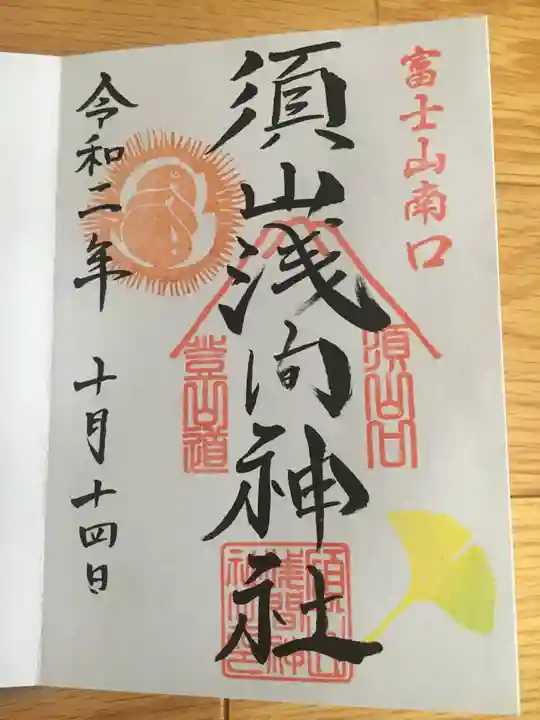 富士山南口
須山浅间神社
須山口
登山道
須山
浅間神
社之印
令和二年 十月十四日